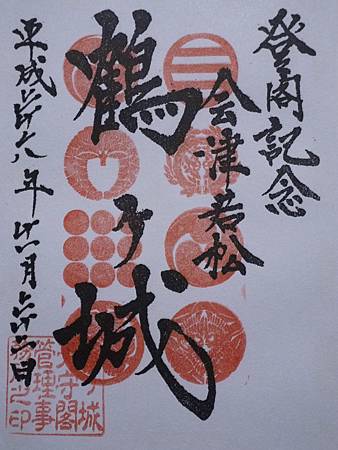 登閣記念
会津若松
鶴ヶ城
平成二十八年 月 日
ヶ城
天守閣
管理事
務所之印